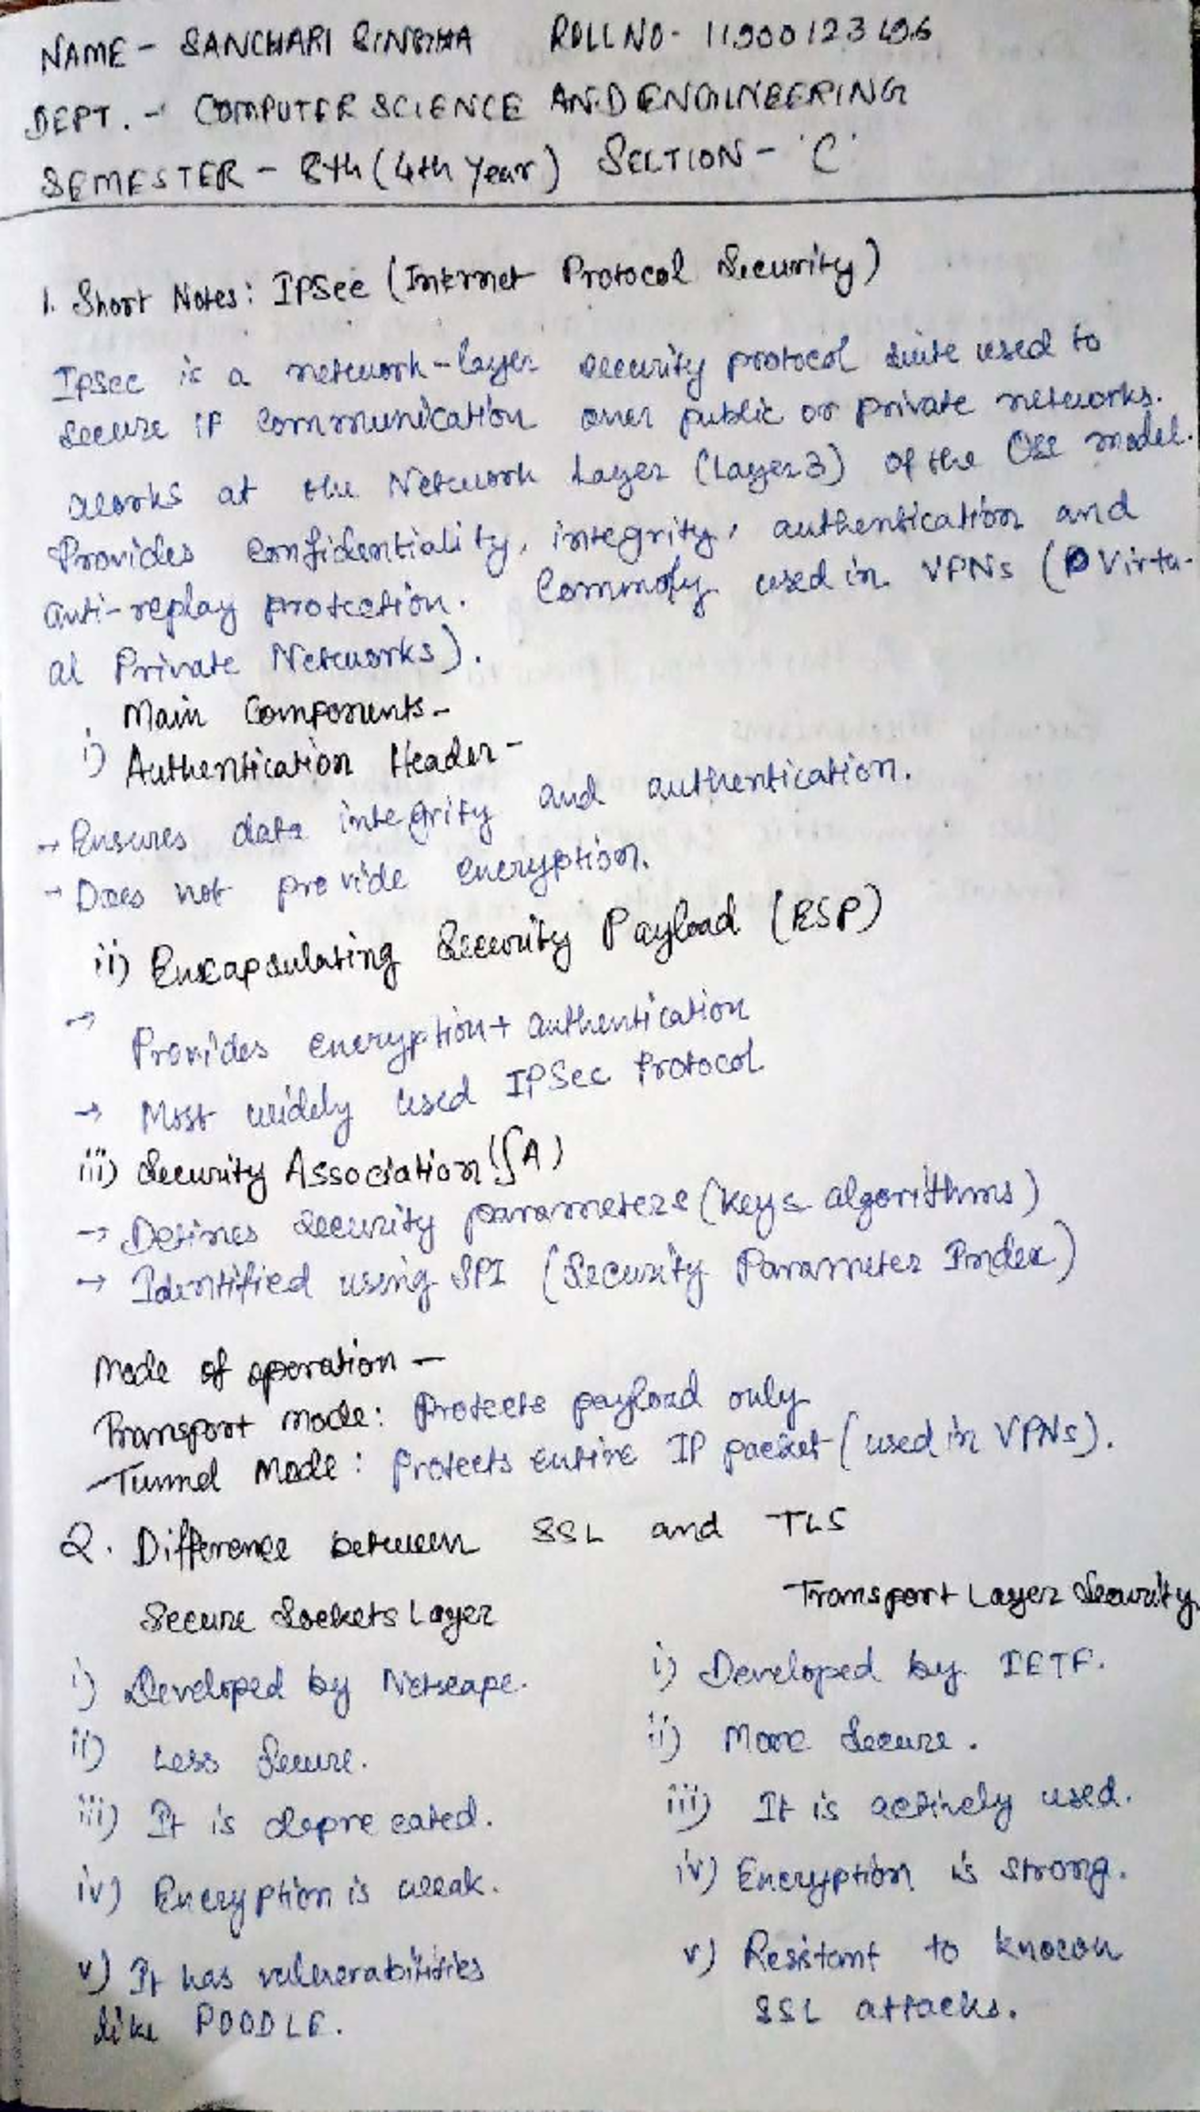 NAME - SANCHARI SINGHA ROLL NO -
DEPT. - COMPUTER SCIENCE AND ENGINEERING
SEMESTER - 8th (4th Year) SECTION - 'C'
1. Short Notes: IPSec (Internet Protocol Security)
IPSec is a network-layer security protocol suite used to
secure IP communication over public or private networks.
Works at the Network Layer (Layer 3) of the OSI model.
Provides confidentiality, integrity, authentication and
anti-replay protection. Commonly used in VPNs (Virtu-
al Private Networks).
Main Components -
i) Authentication Header -
→ Ensures data integrity and authentication.
→ Does not provide encryption.
ii) Encapsulating Security Payload (ESP)
→ Provides encryption + authentication
→ Most widely used IPSec Protocol
iii) Security Association (SA)
→ Defines security parameters (keys algorithms)
→ Identified using SPI (Security Parameter Index)
Mode of operation -
Transport mode: Protects payload only
Tunnel Mode: Protects entire IP packet (used in VPNs).
2. Difference between SSL and TLS
Secure Sockets Layer Transport Layer Security
i) Developed by Netscape. i) Developed by IETF.
ii) Less Secure. ii) More Secure.
iii) It is depre cated. iii) It is actively used.
iv) Encryption is weak. iv) Encryption is strong.
v) It has vulnerabilities v) Resistant to known
like POODLE. SSL attacks.